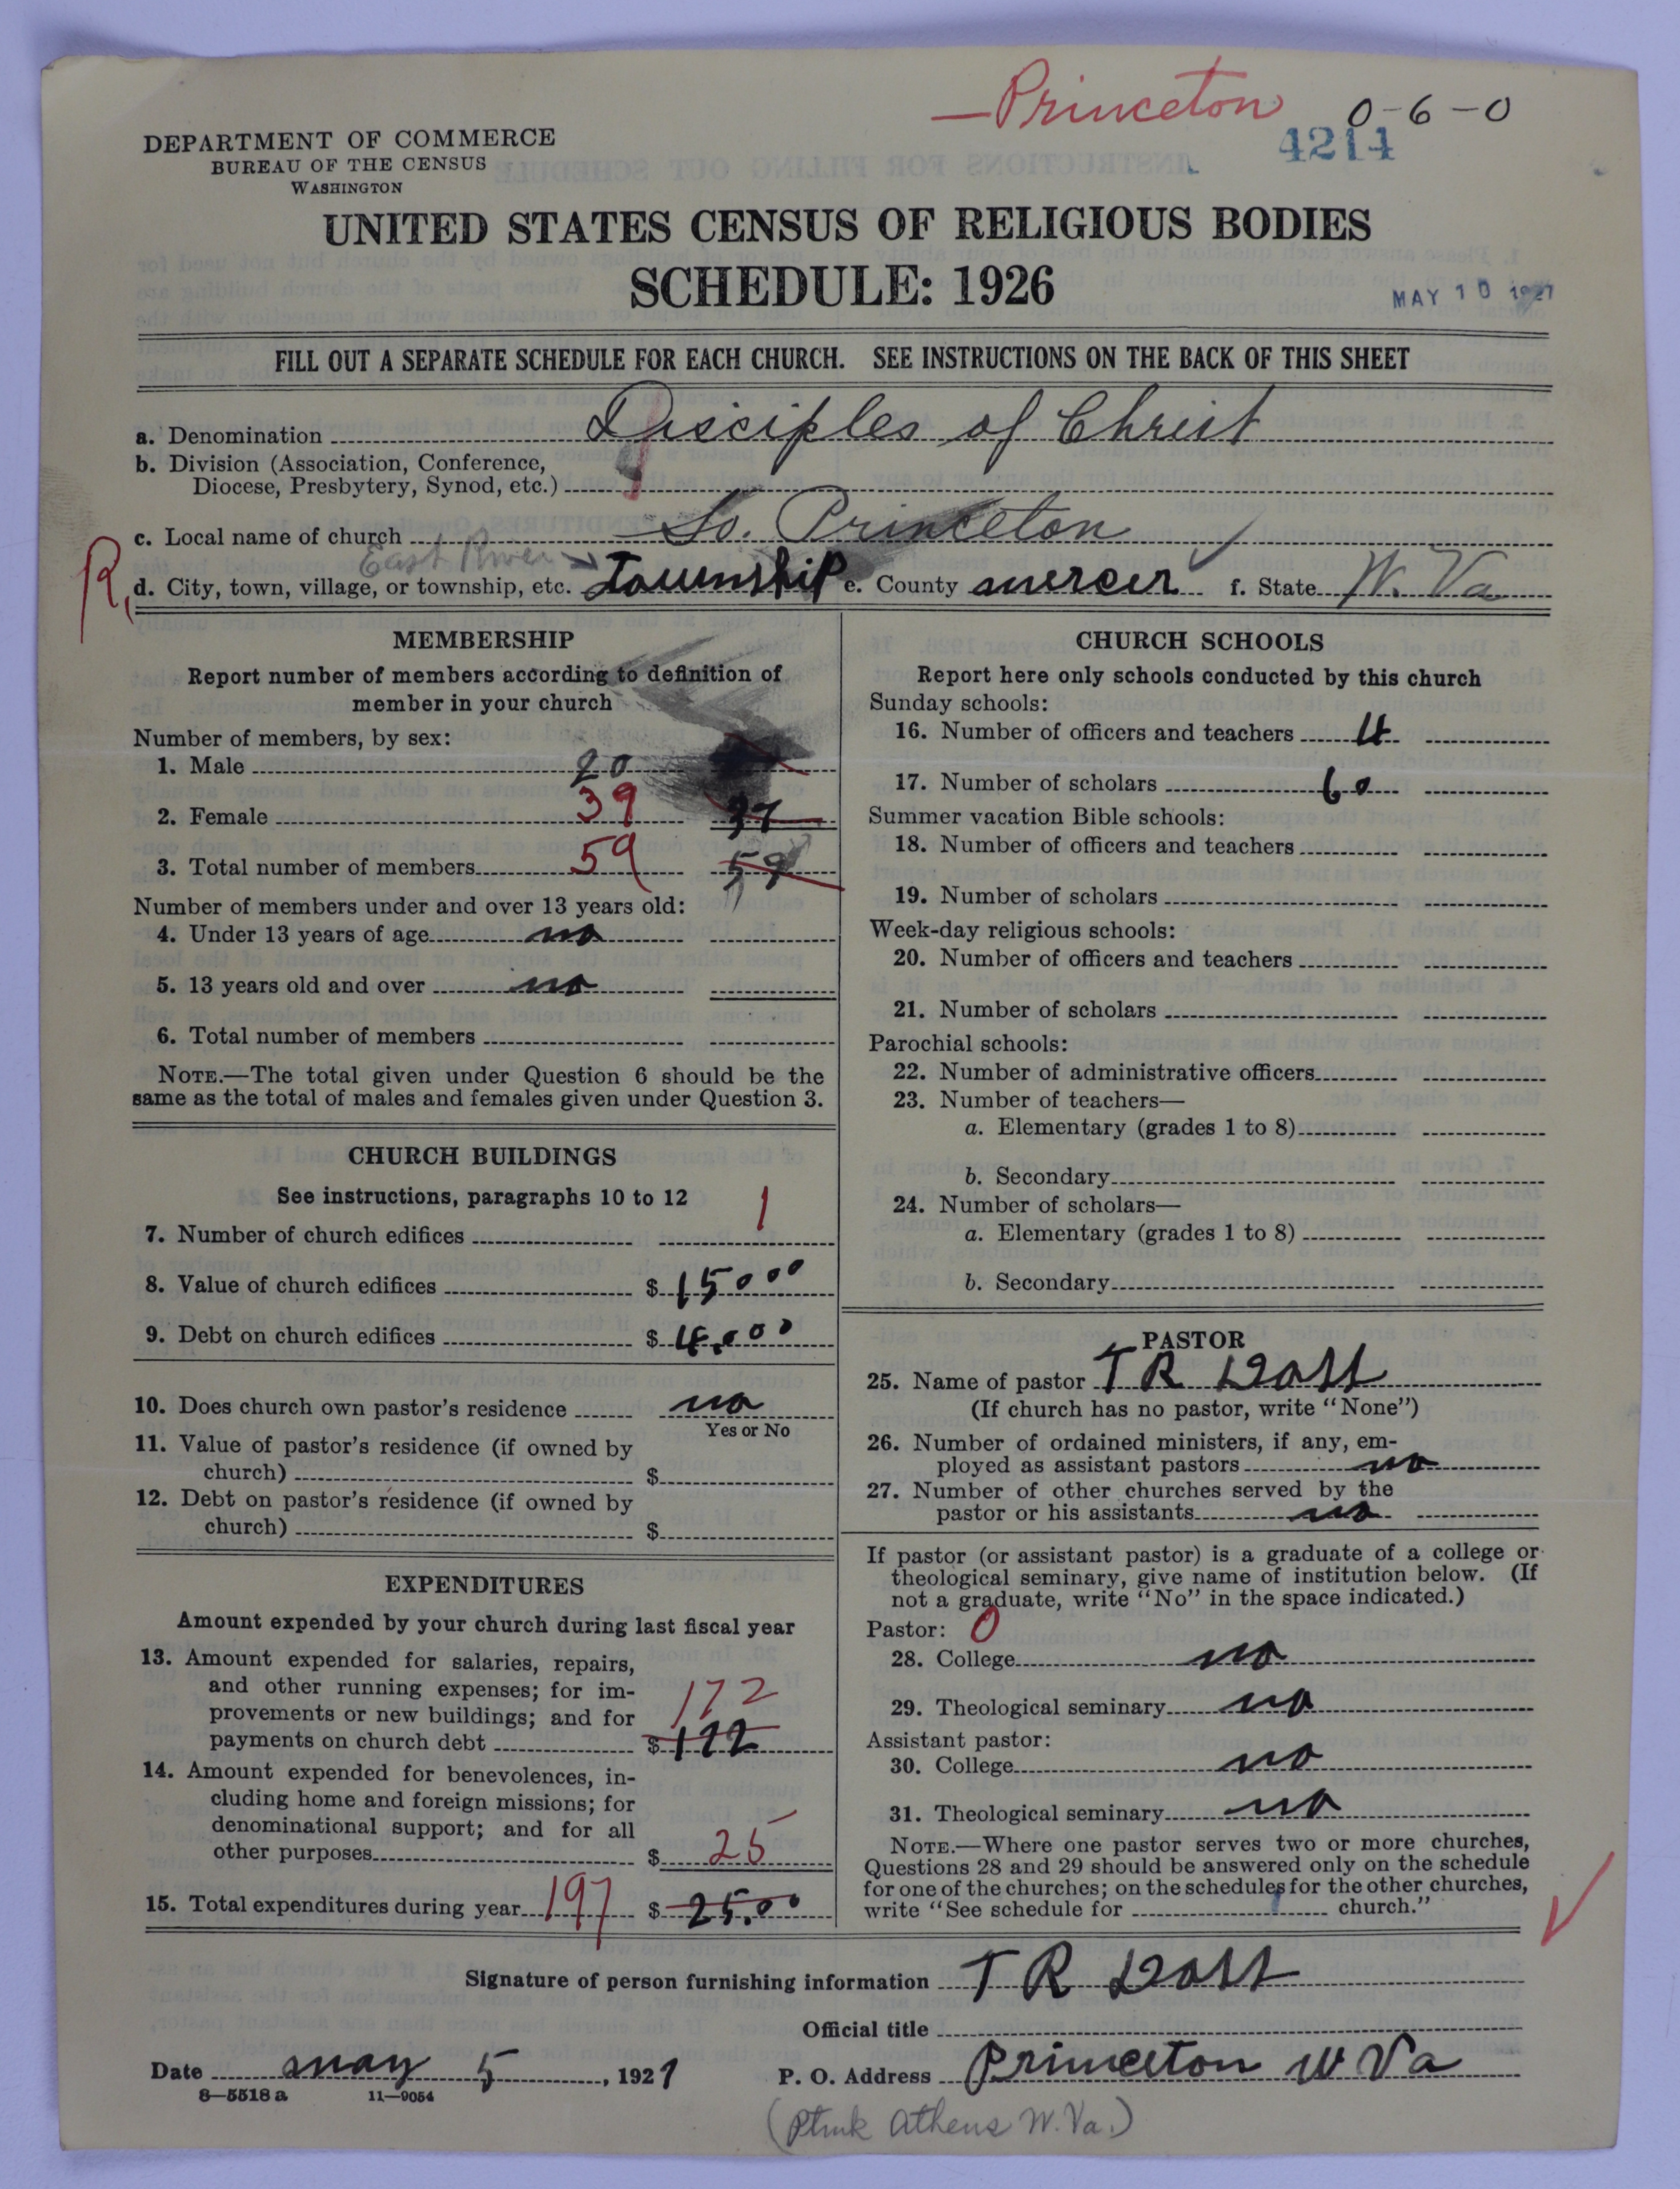 —Princeton 0-6-0
4214
DEPARTMENT OF COMMERCE
BUREAU OF THE CENSUS
WASHINGTON
UNITED STATES CENSUS OF RELIGIOUS BODIES
SCHEDULE: 1926
MAY 10 1927
FILL OUT A SEPARATE SCHEDULE FOR EACH CHURCH. SEE INSTRUCTIONS ON THE BACK OF THIS SHEET
a. Denomination Disciples of Christ
b. Division (Association, Conference,
Diocese, Presbytery, Synod, etc.)
c. Local name of church So. Princeton
East River
R, d. City, town, village, or township, etc. Township e. County mercer f. State W. Va
MEMBERSHIP
Report number of members according to definition of
member in your church
Number of members, by sex:
1. Male 20
2. Female 39 37
3. Total number of members 59 59
Number of members under and over 13 years old:
4. Under 13 years of age no
5. 13 years old and over no
6. Total number of members
NOTE.—The total given under Question 6 should be the
same as the total of males and females given under Question 3.
CHURCH BUILDINGS
See instructions, paragraphs 10 to 12
7. Number of church edifices 1
8. Value of church edifices $ 15000
9. Debt on church edifices $ 4.000
10. Does church own pastor's residence no
Yes or No
11. Value of pastor's residence (if owned by
church) $
12. Debt on pastor's residence (if owned by
church) $
EXPENDITURES
Amount expended by your church during last fiscal year
13. Amount expended for salaries, repairs,
and other running expenses; for im-
provements or new buildings; and for 172
payments on church debt $ 172
14. Amount expended for benevolences, in-
cluding home and foreign missions; for
denominational support; and for all
other purposes $ 25
15. Total expenditures during year 197 $ 25.00
CHURCH SCHOOLS
Report here only schools conducted by this church
Sunday schools:
16. Number of officers and teachers 4
17. Number of scholars 60
Summer vacation Bible schools:
18. Number of officers and teachers
19. Number of scholars
Week-day religious schools:
20. Number of officers and teachers
21. Number of scholars
Parochial schools:
22. Number of administrative officers
23. Number of teachers—
a. Elementary (grades 1 to 8)
b. Secondary
24. Number of scholars—
a. Elementary (grades 1 to 8)
b. Secondary
PASTOR
25. Name of pastor T R
(If church has no pastor, write "None")
26. Number of ordained ministers, if any, em-
ployed as assistant pastors no
27. Number of other churches served by the
pastor or his assistants no
If pastor (or assistant pastor) is a graduate of a college or
theological seminary, give name of institution below. (If
not a graduate, write "No" in the space indicated.)
Pastor: 0
28. College no
29. Theological seminary no
Assistant pastor:
30. College no
31. Theological seminary no
NOTE.—Where one pastor serves two or more churches,
Questions 28 and 29 should be answered only on the schedule
for one of the churches; on the schedules for the other churches,
write "See schedule for church."
Signature of person furnishing information T R
Official title
Date may 5, 1927 P. O. Address Princeton W Va
8—5518 a 11—9054
(Ptmk Athens W. Va.)